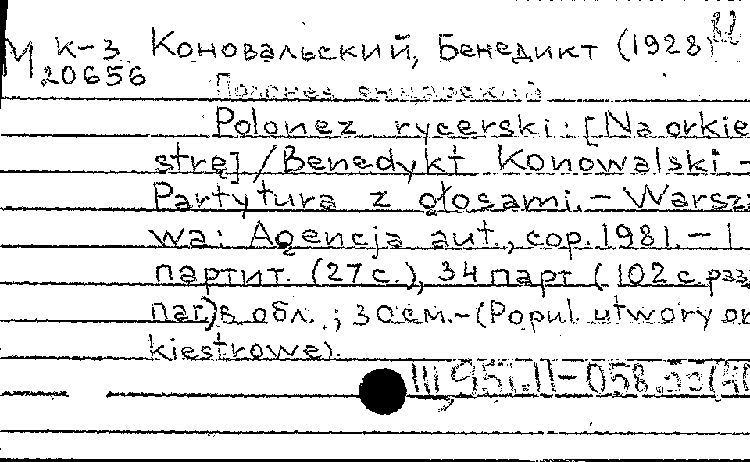 М к-3 Коновальский, Бенедикт (1928
20656
Полонез рыцарский
Polonez rycerski: [Na orkie-
strę] / Benedykt Konowalski -
Partytura z głosami. - Warsza
wa: Agencja aut., cop. 1981. - 1
партит. (27 с.), 34 парт (102 с. раз
паг) в обл.; 30 см. - (Popul. utwory or
kiestrowe).